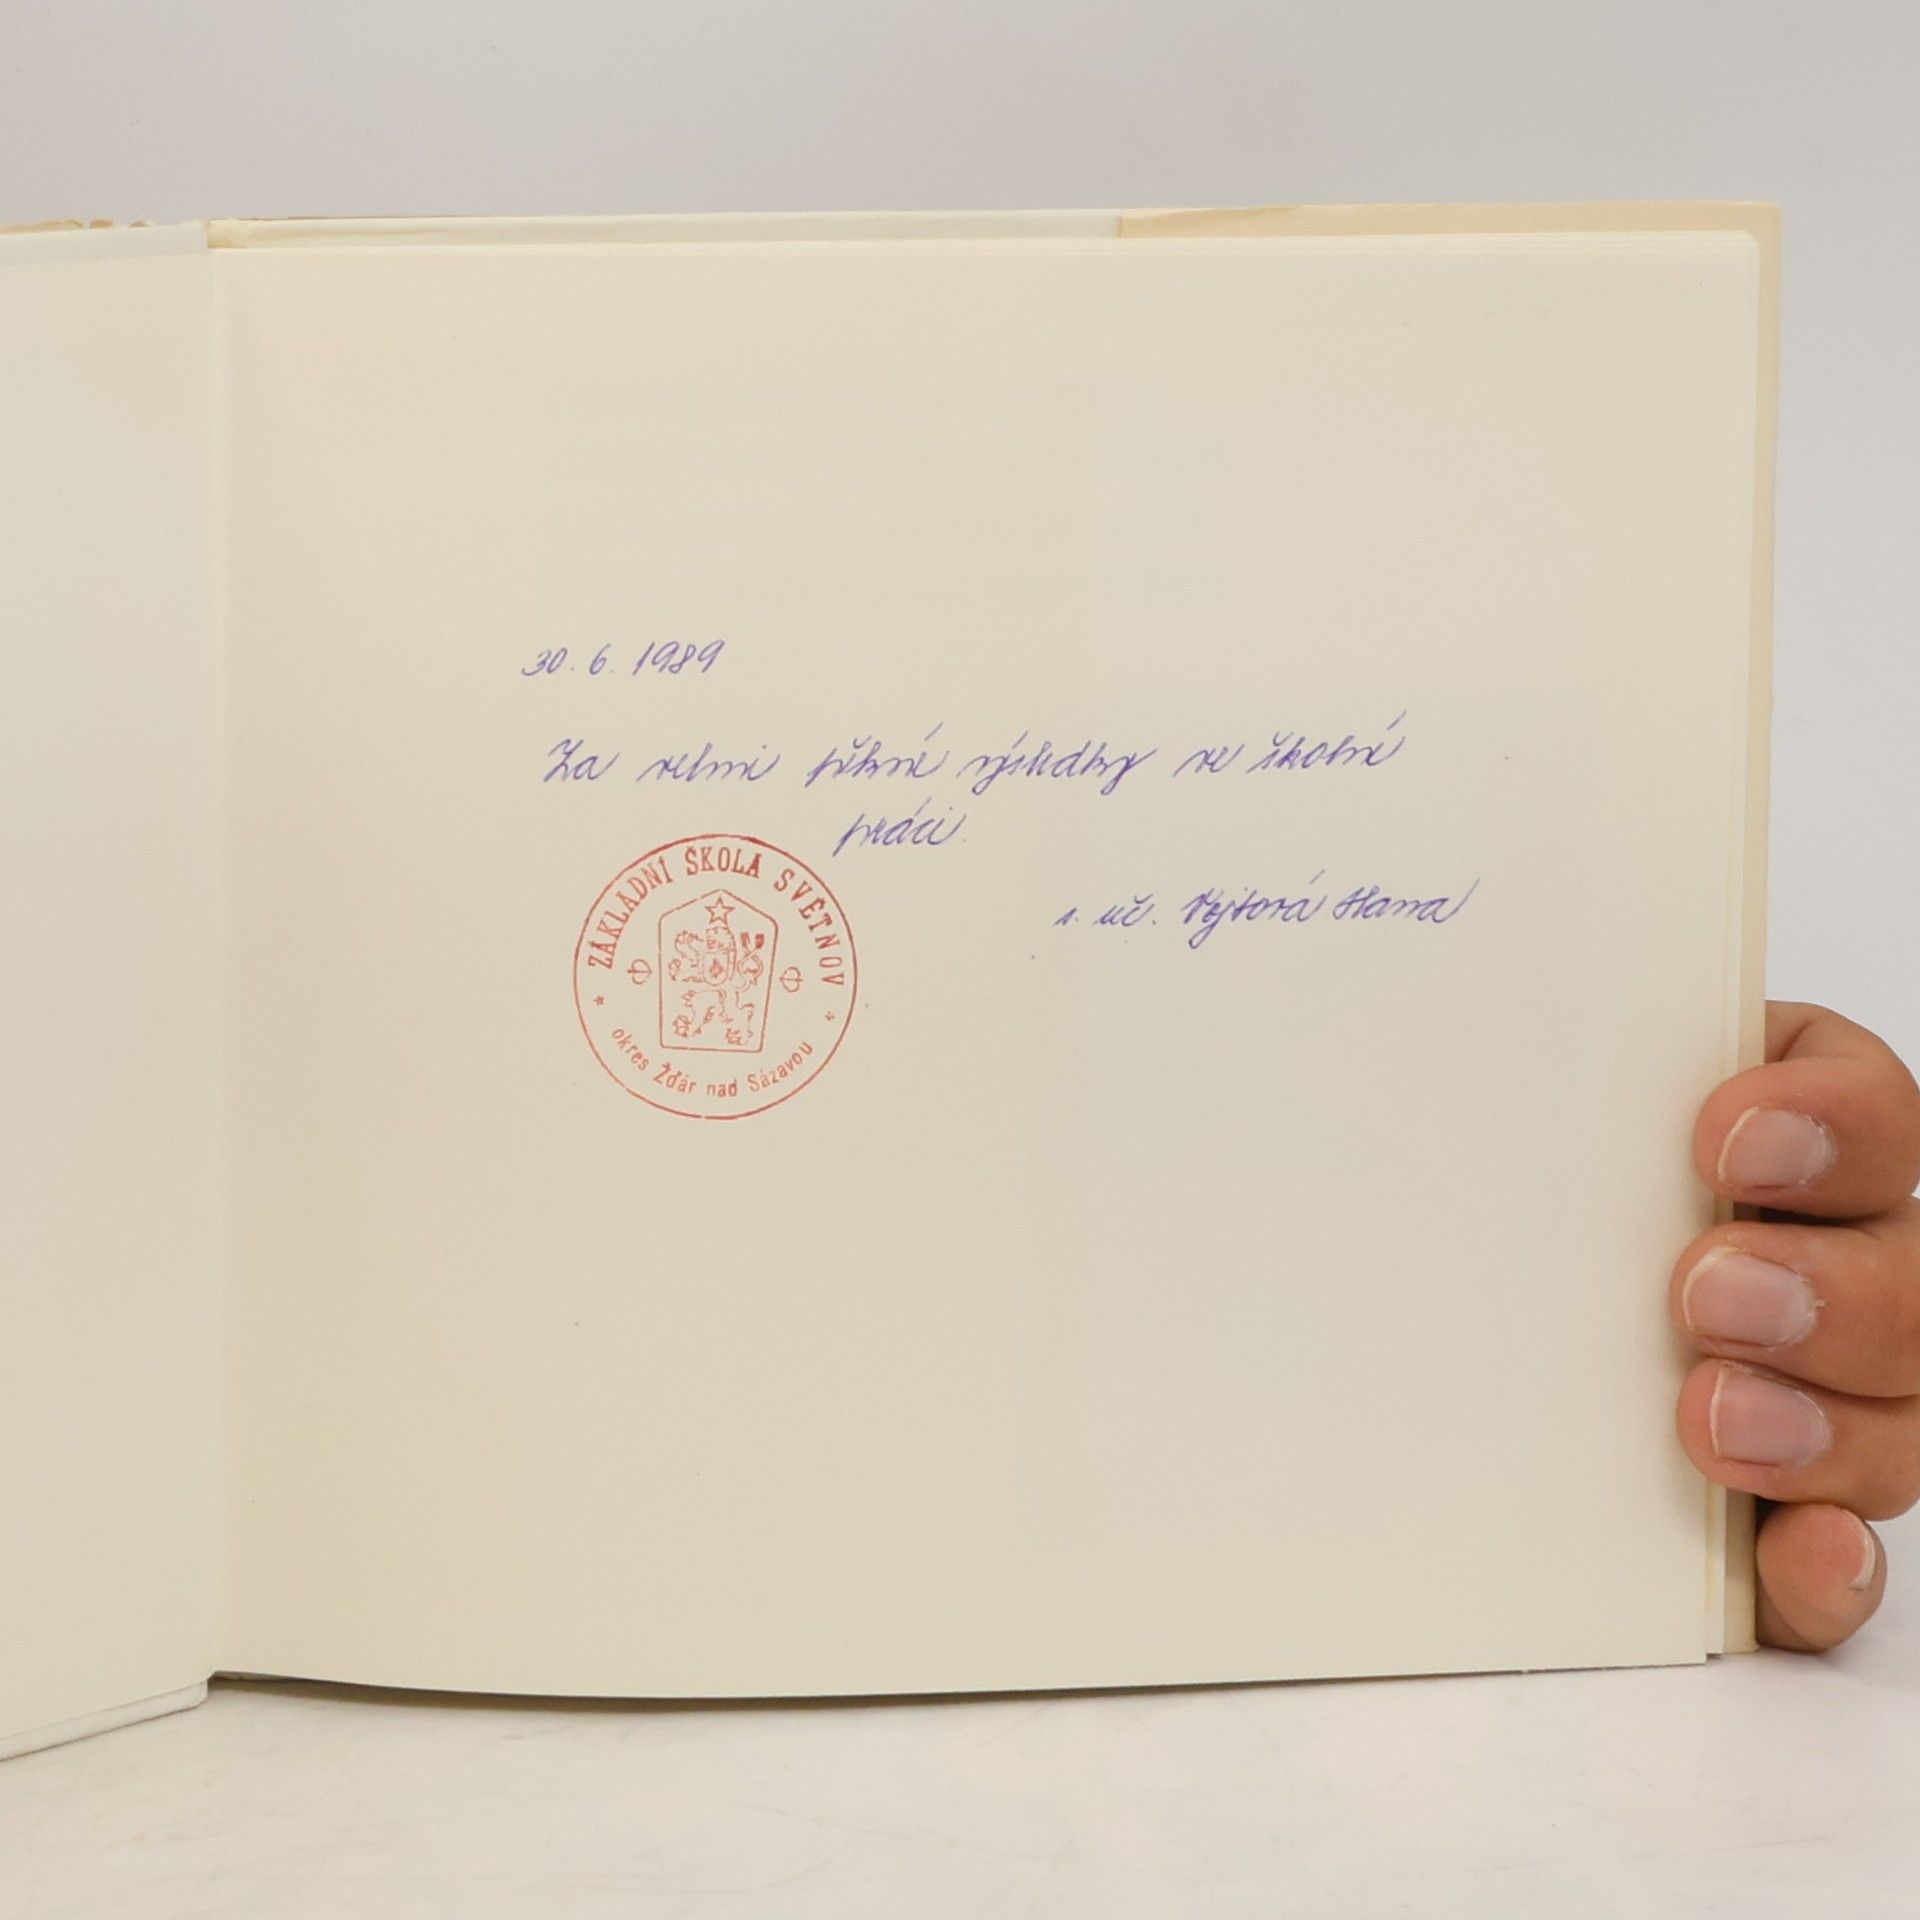 30. 6. 1989
Za velmi pěkné výsledky ve školní
práci.
s. uč. Vejtová Hana
ZÁKLADNÍ ŠKOLA SVĚTNOV
okres Žďár nad Sázavou